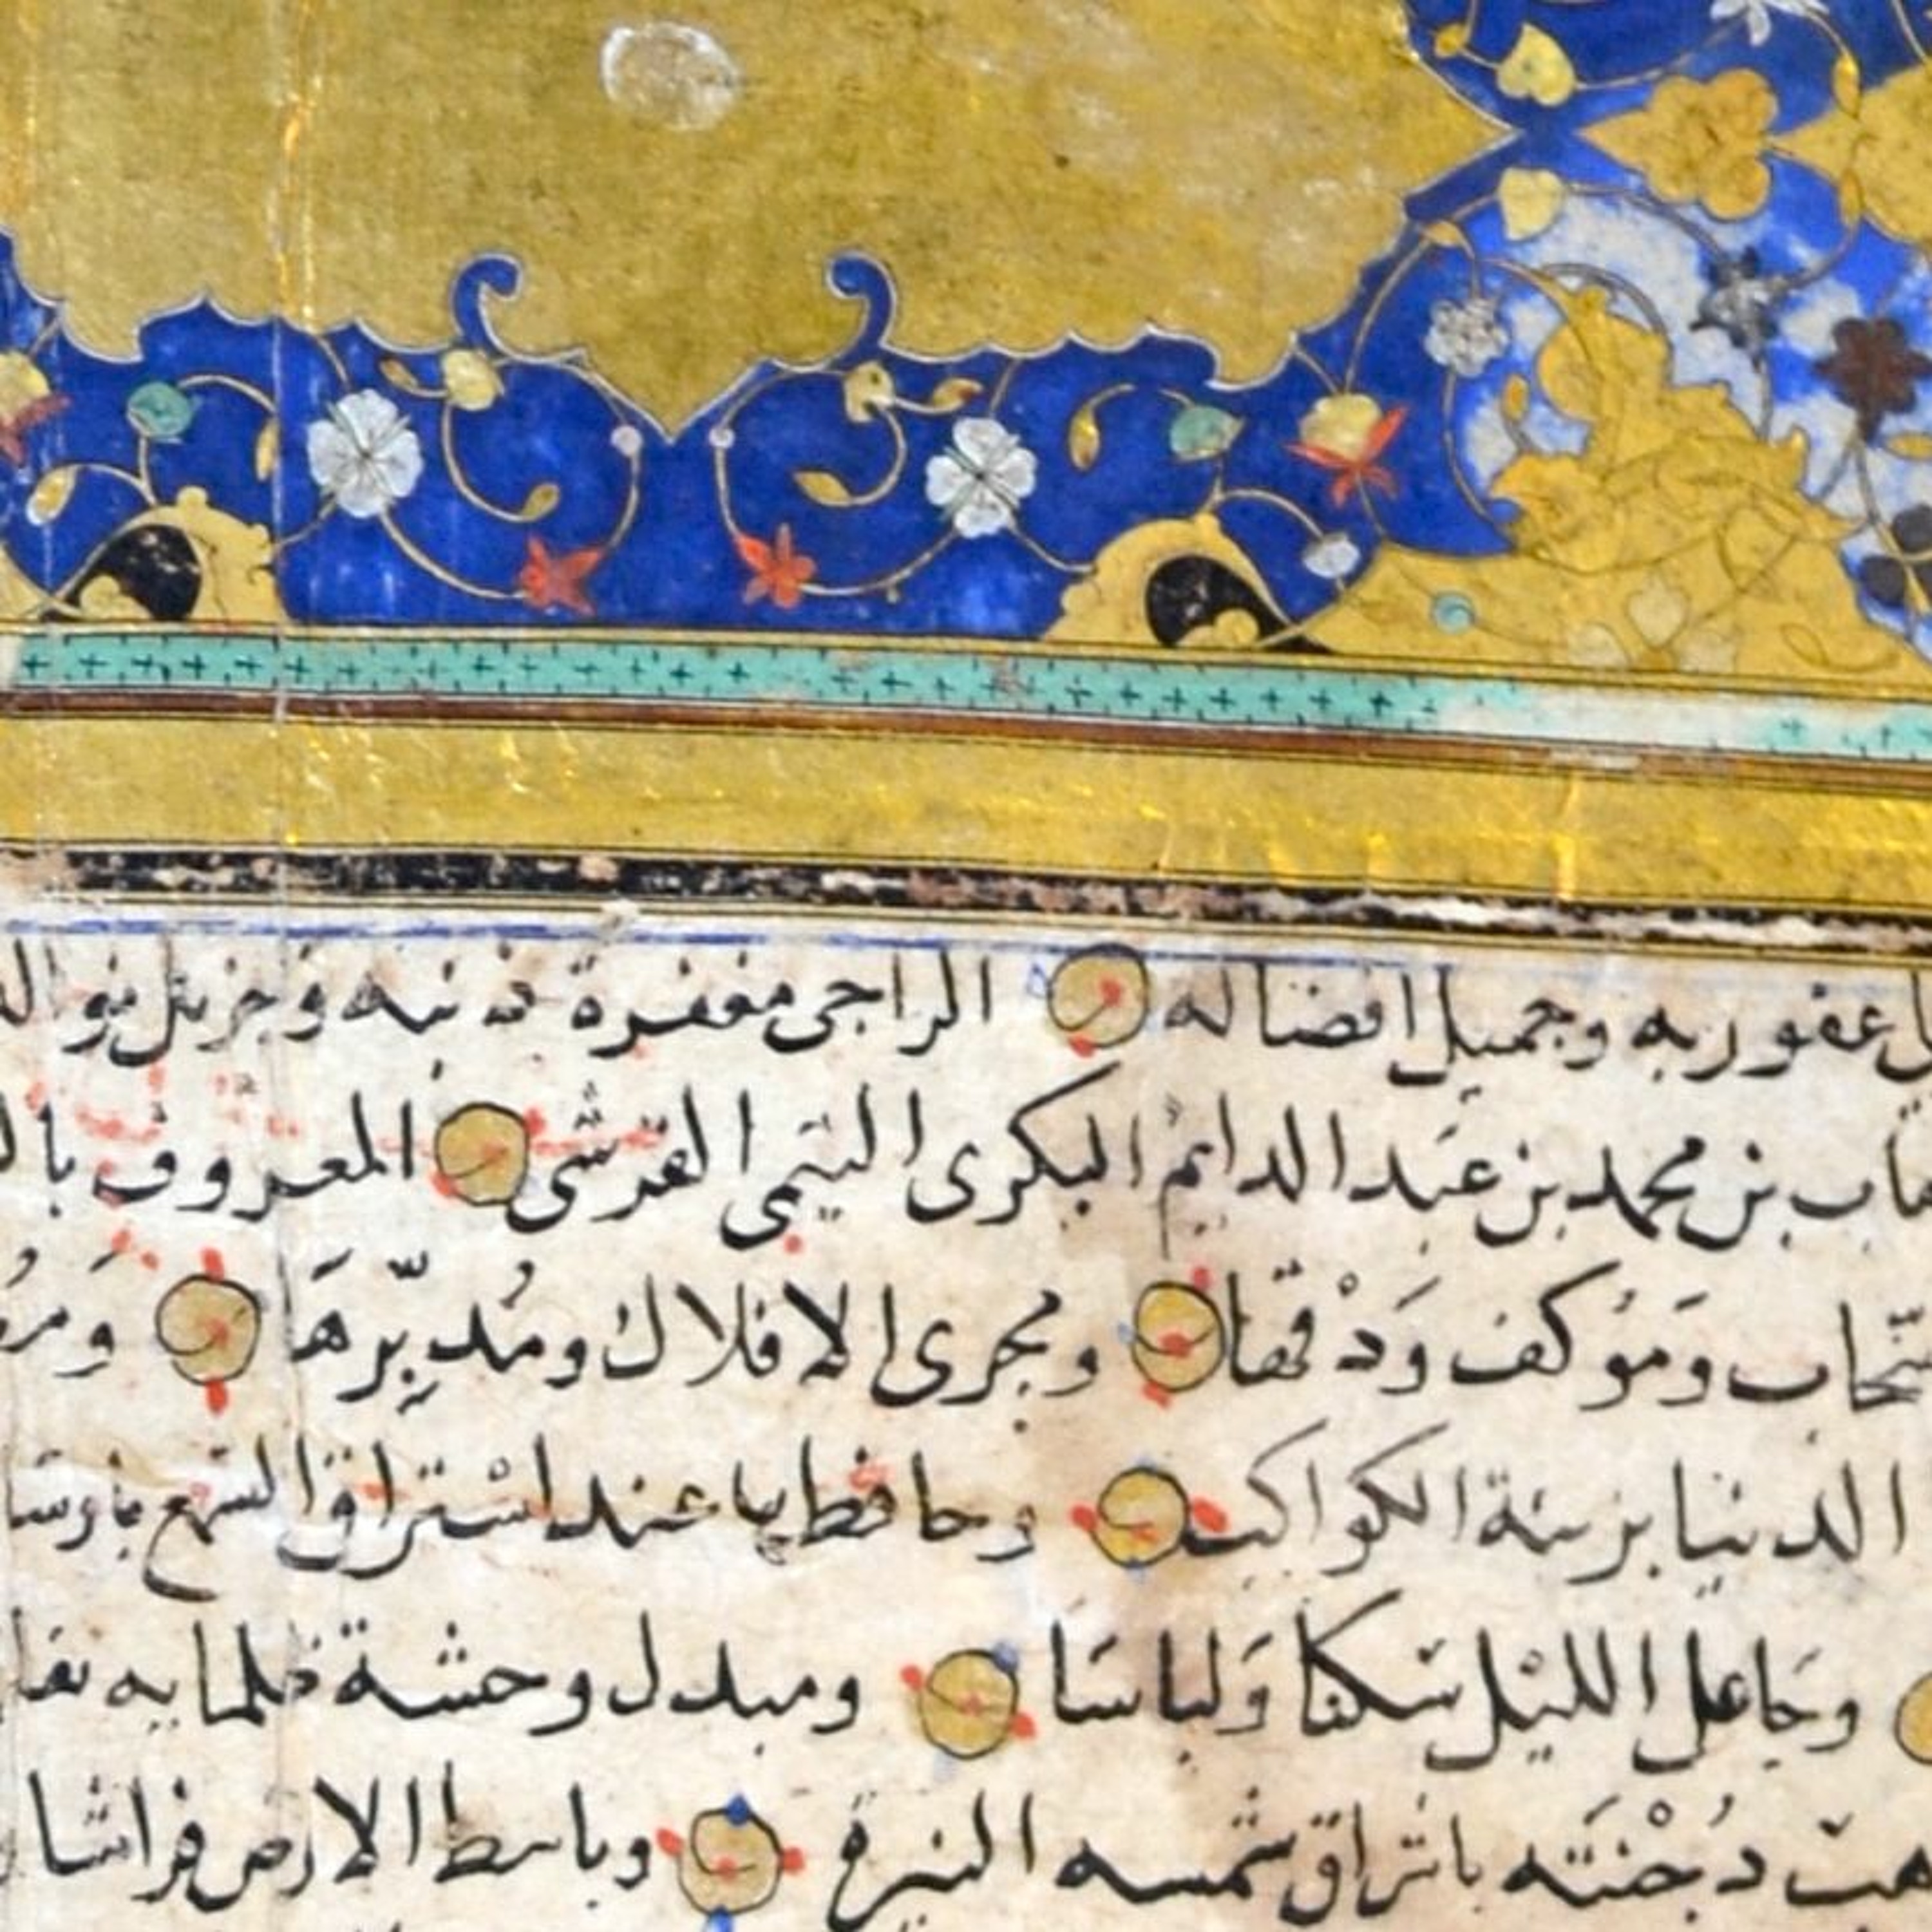 عفو ربه وجميل افضاله الراجى مغفرة ذنبه وجزيل نواله
بن محمد بن عبد الدايم البكرى التيمى القرشى المعروف
ومؤكف وَدْقها ومجرى الافلاك ومُدبِّرهَا
الدنيا بزينة الكواكب وحافظها عند اسْتراق السمع
وجَاعل الليْل سَكنًا وَلباسًا ومبدل وحشة ظلمايه
دُجْنَته باشراق شمسه المنيرة وباسط الارض فراشا